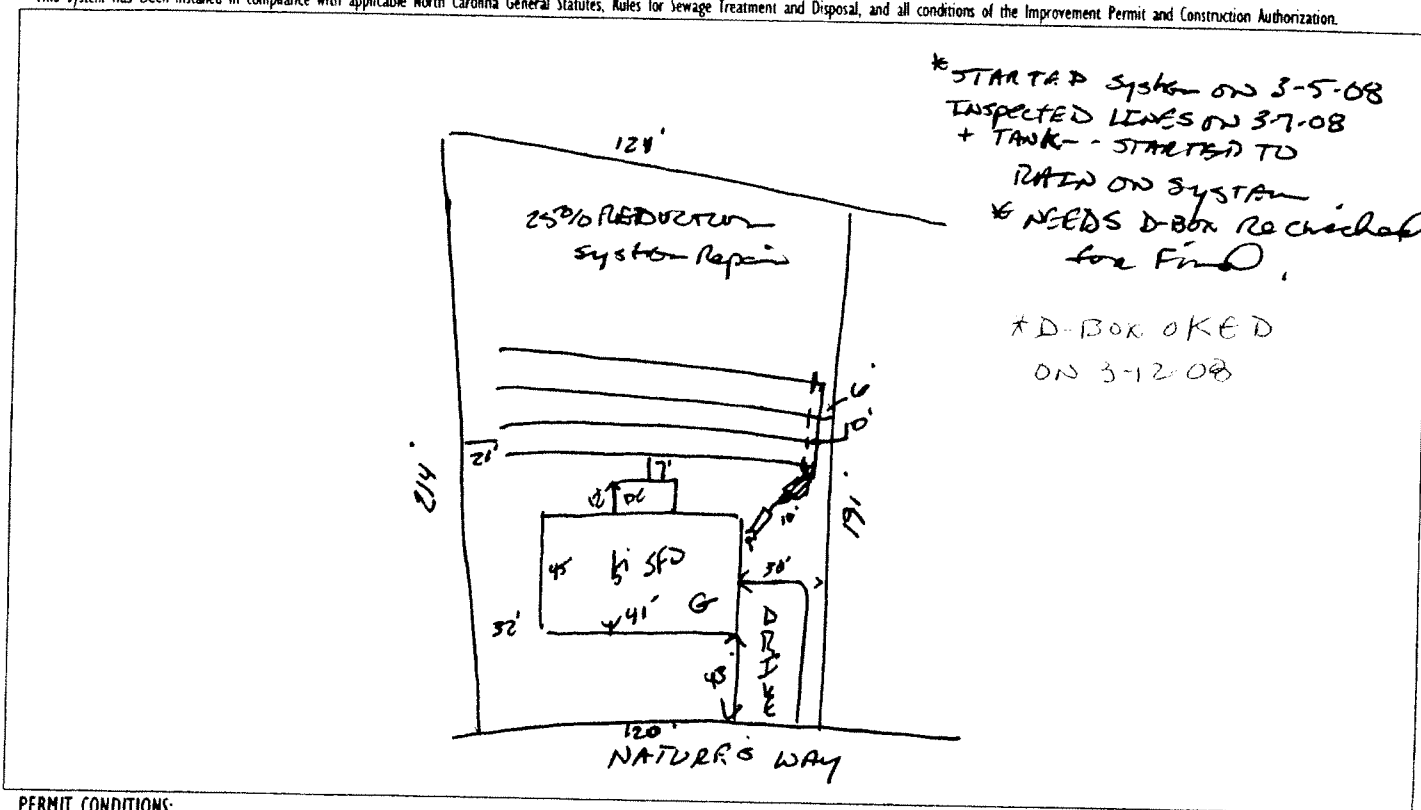 This system has been installed in compliance with applicable North Carolina General Statutes, Rules for Sewage Treatment and Disposal, and all conditions of the Improvement Permit and Construction Authorization.
* STARTED System ON 3-5-08
INSPECTED LINES ON 3-7-08
+ TANK-- STARTED TO
RAIN ON SYSTEM
* NEEDS D-BOX Rechecked
for Final.
* D-BOX OKED
ON 3-12-08
25% REDUCTION
System Repair
6'
10'
214'
191'
7'
10'
45'
SFD
G
30'
41'
32'
DRIVE
43'
120'
NATURE'S WAY
PERMIT CONDITIONS: